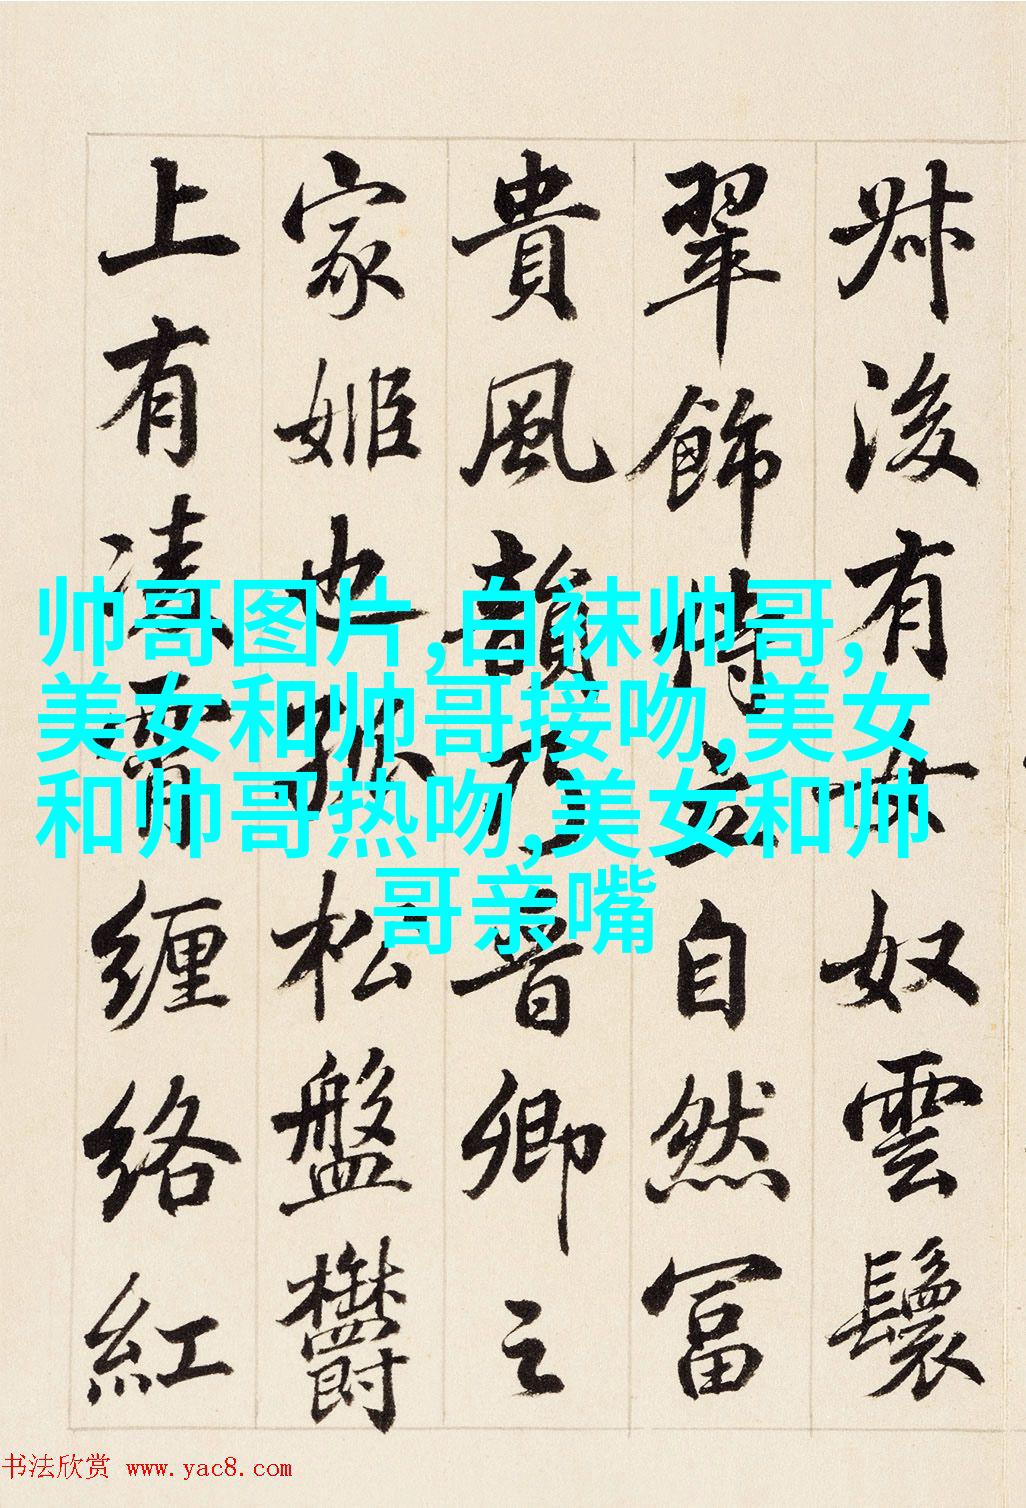 叔後有女奴雲鬟
翠飾侍立自然富
貴風韻乃晉卿之
家姬也孤松盤鬱
上有凌霄纏絡紅
帅哥图片,白袜帅哥,
美女和帅哥接吻,美女
和帅哥热吻,美女和帅
哥亲嘴
书法欣赏 www.yac8.com